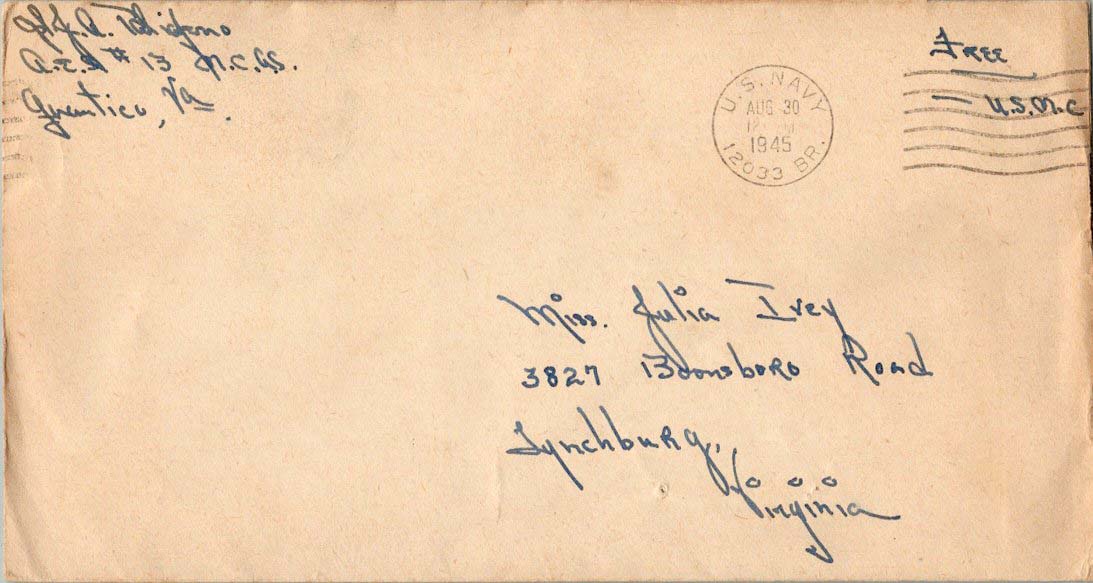 A.E.S # 13 M.C.A.S.
Quantico, Va.
U.S. NAVY
AUG 30
1945
12033 BR.
Free
— U.S.M.C
Miss. Julia Ivey
3827 Boonsboro Road
Lynchburg,
Virginia